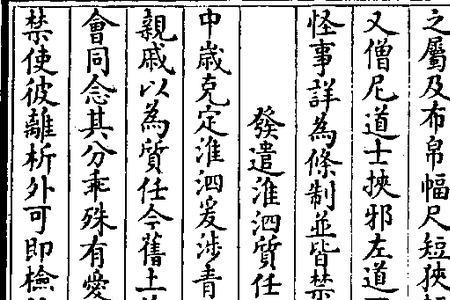 之屬及布帛幅尺短狹
又僧尼道士挾邪左道
怪事詳為條制並皆禁
發遣淮泗質任
中歲克定淮泗爰涉青
親戚以為質任今舊土
會同念其分乖殊有愛
禁使彼離析外可即檢